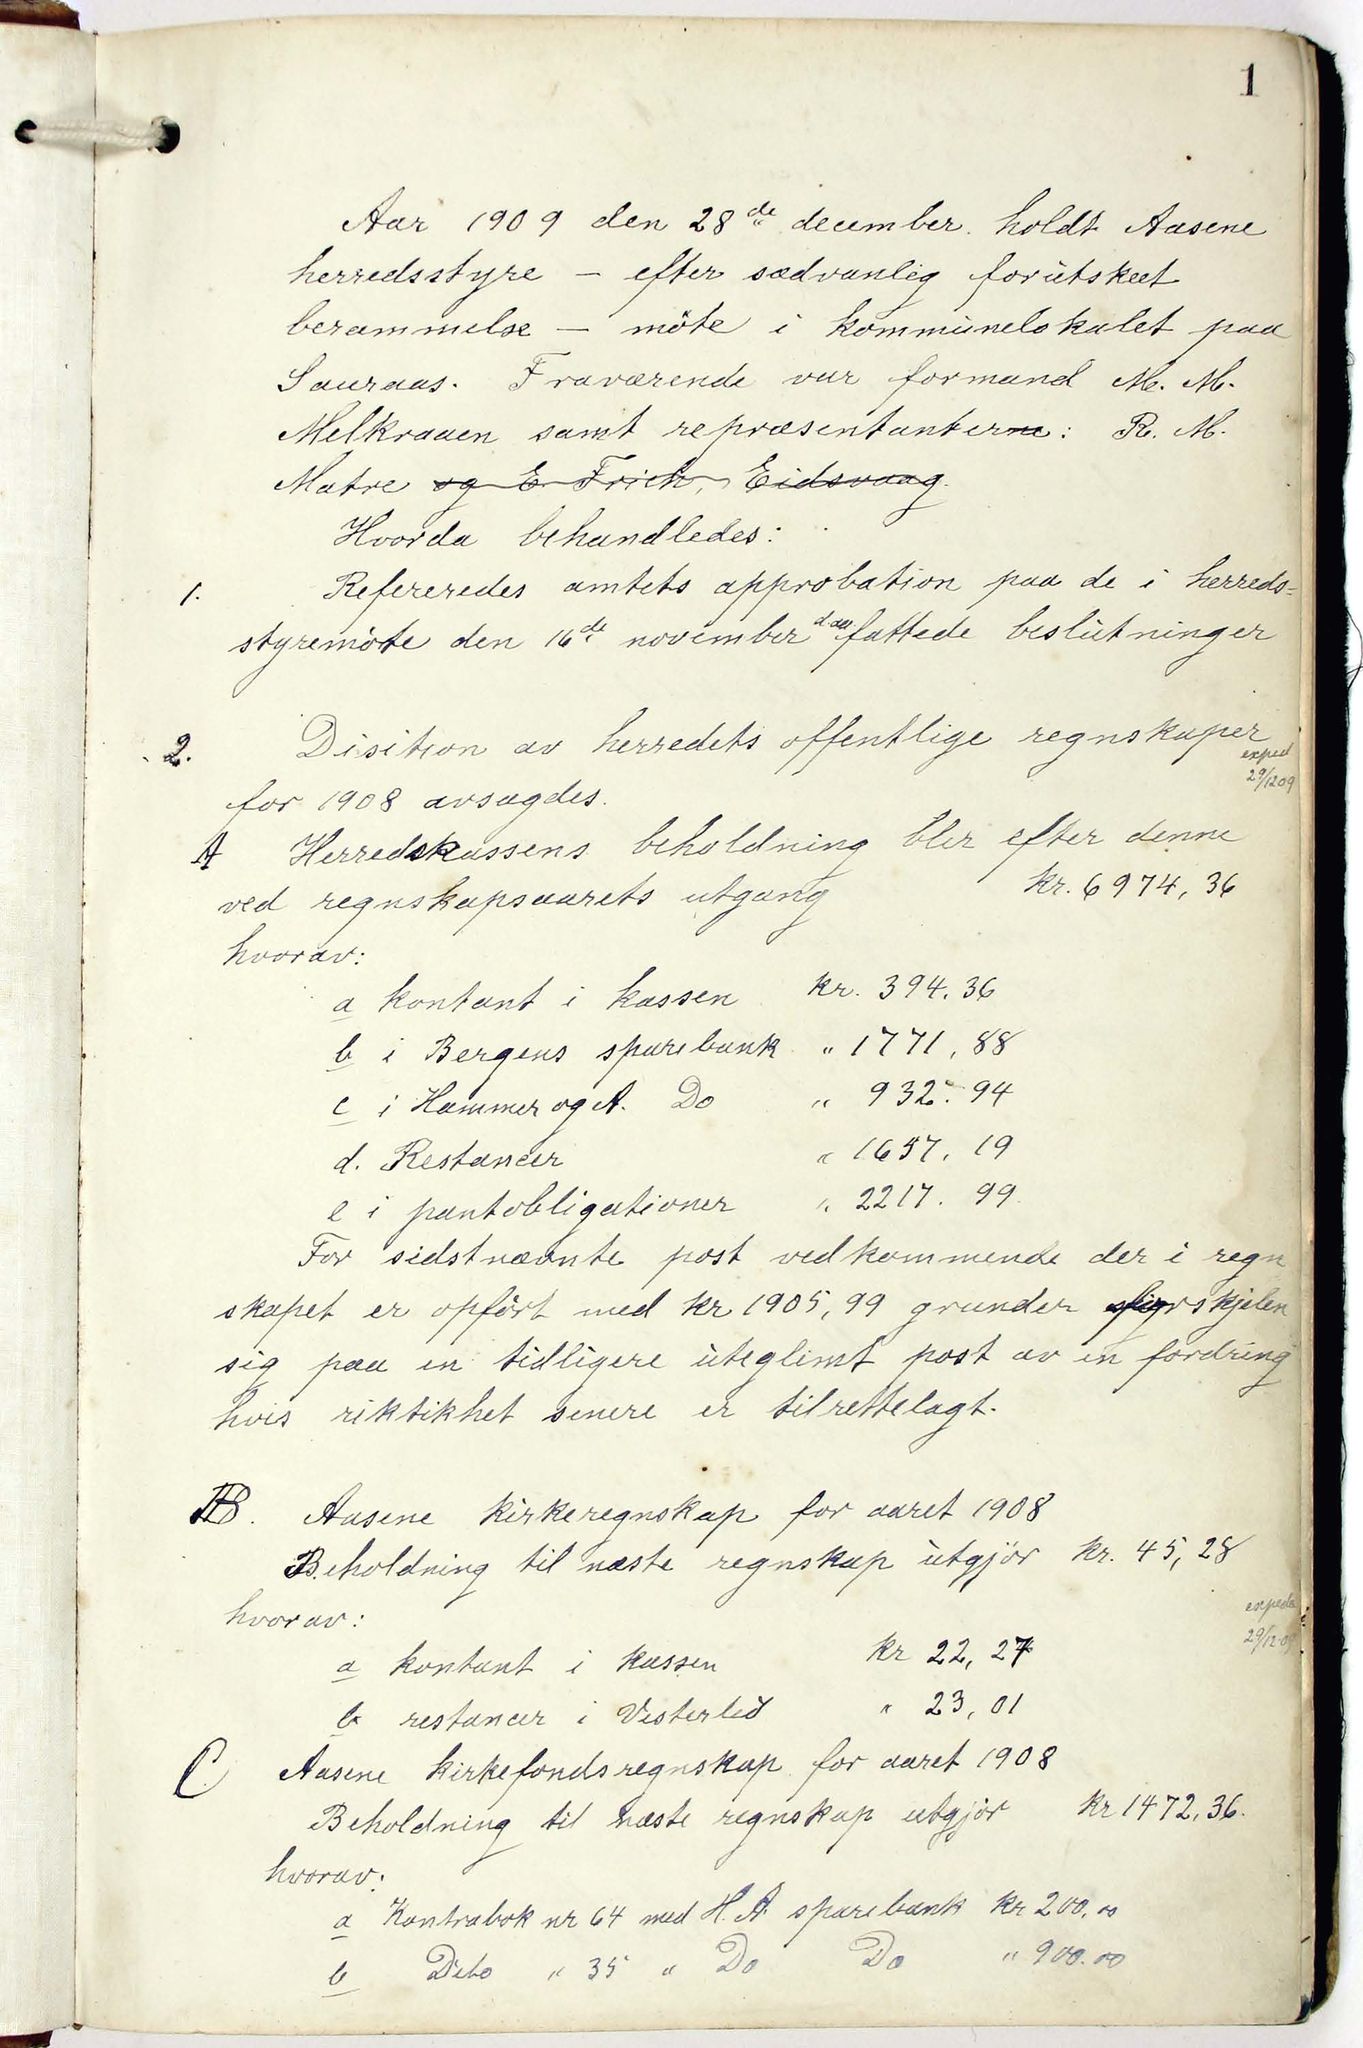 1
Aar 1909 den 28de december holdt Aasene
herredsstyre – efter sædvanlig forutskeet
berammelse – möte i kommunelokalet paa
Sauraas. Fraværende var formand M. M.
Melkraaen samt repræsentanterne: R. M.
Matre og E Frich, Eidsvaag.
Hvorda behandledes:
1. Refereredes amtets approbation paa de i herreds=
styremöte den 16de november d. aa. fattede beslutninger
2. Disition av herredets offentlige regnskaper
exped
29/12 09
for 1908 avsagdes.
A Herredskassens beholdning blir efter denne
ved regnskapsaarets utgang kr. 6974,36
hvorav:
a kontant i kassen kr. 394.36
b i Bergens sparebank " 1771,88
c i Hammer og A. Do " 932.94
d. Restancer " 1657.19
e i pantobligationer " 2217.99
For sidstnævnte post vedkommende der i regn
skapet er opfört med kr 1905,99 grunder forskjelen
sig paa en tidligere uteglemt post av en fordring
hvis riktikhet senere er tilrettelagt.
B. Aasene kirkeregnskap for aaret 1908
Beholdning til næste regnskap utgjör kr. 45,28
hvorav:
exped
29/12 09
a kontant i kassen kr 22,27
b restancer i Vesterled " 23,01
C. Aasene kirkefondsregnskap for aaret 1908
Beholdning til næste regnskap utgjör kr 1472,36.
hvorav:
a Kontrabok nr 64 med H. A. sparebank kr 200.00
b Dito " 35 " Do Do " 900.00